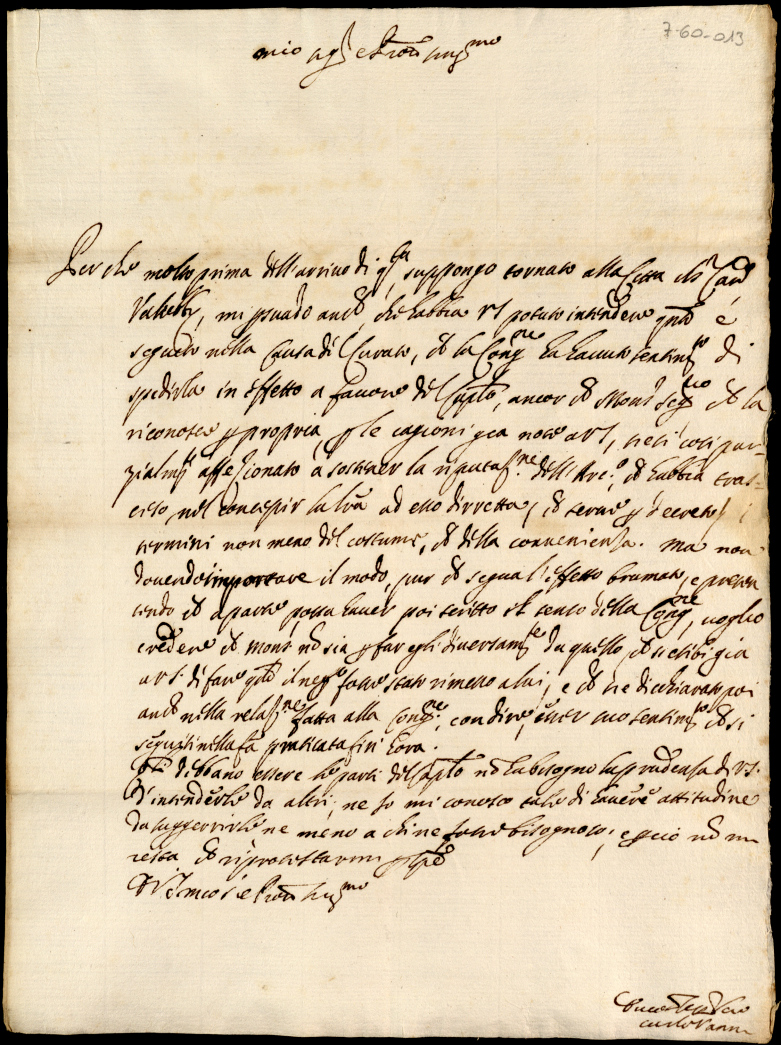 7-60-013
mio sig.r e Pron mio
Perche molto prima dell'arrivo di q.sta suppongo tornato alla Città il S.r Card
mi psuado anco, che habbia VS potuto intendere q.to è
seguito nella Causa di Curato, che la Cong.ne ha havuto sentim.to di
spedirla in effetto a favore del Capto, ancor che Mons.r Seg.rio che la
riconosce p propria, p le cagioni già note a VS, siesi così par-
zialm.te affezionato à sostener la riputaz.ne dell'Arc.o, che habbia tras-
corso nel concepir la lra ad esso diretta, che serve p decreto, i
termini non meno del costume, che della convenienza. Ma non
dovendo importare il modo, pur che segua l'effetto bramato, e
che a parte possa haver poi scritto il senso della Cong.ne, voglio
credere che Mons.r nō sia p fargli diversam.te da quello che si esibì già
a VS. di fare q.do il neg.o fosse stato rimesso a lui, e che si è dichiarato poi
anco nella relaz.ne fatta alla Cong.ne, con dire, esser suo sentim.to che si
seguiti nella praticata fin hora.
debbano essere le parti del Capto nō ha bisogno la prudenza di VS.
d'intenderle da altri, ne io mi conosco tale di havere attitudine
da suggerirle ne meno a chi ne fosse bisognoso; e p ciò nō mi
resta che riprotestarmi
Di VS mio S.r e Pron
Carlo Vanni